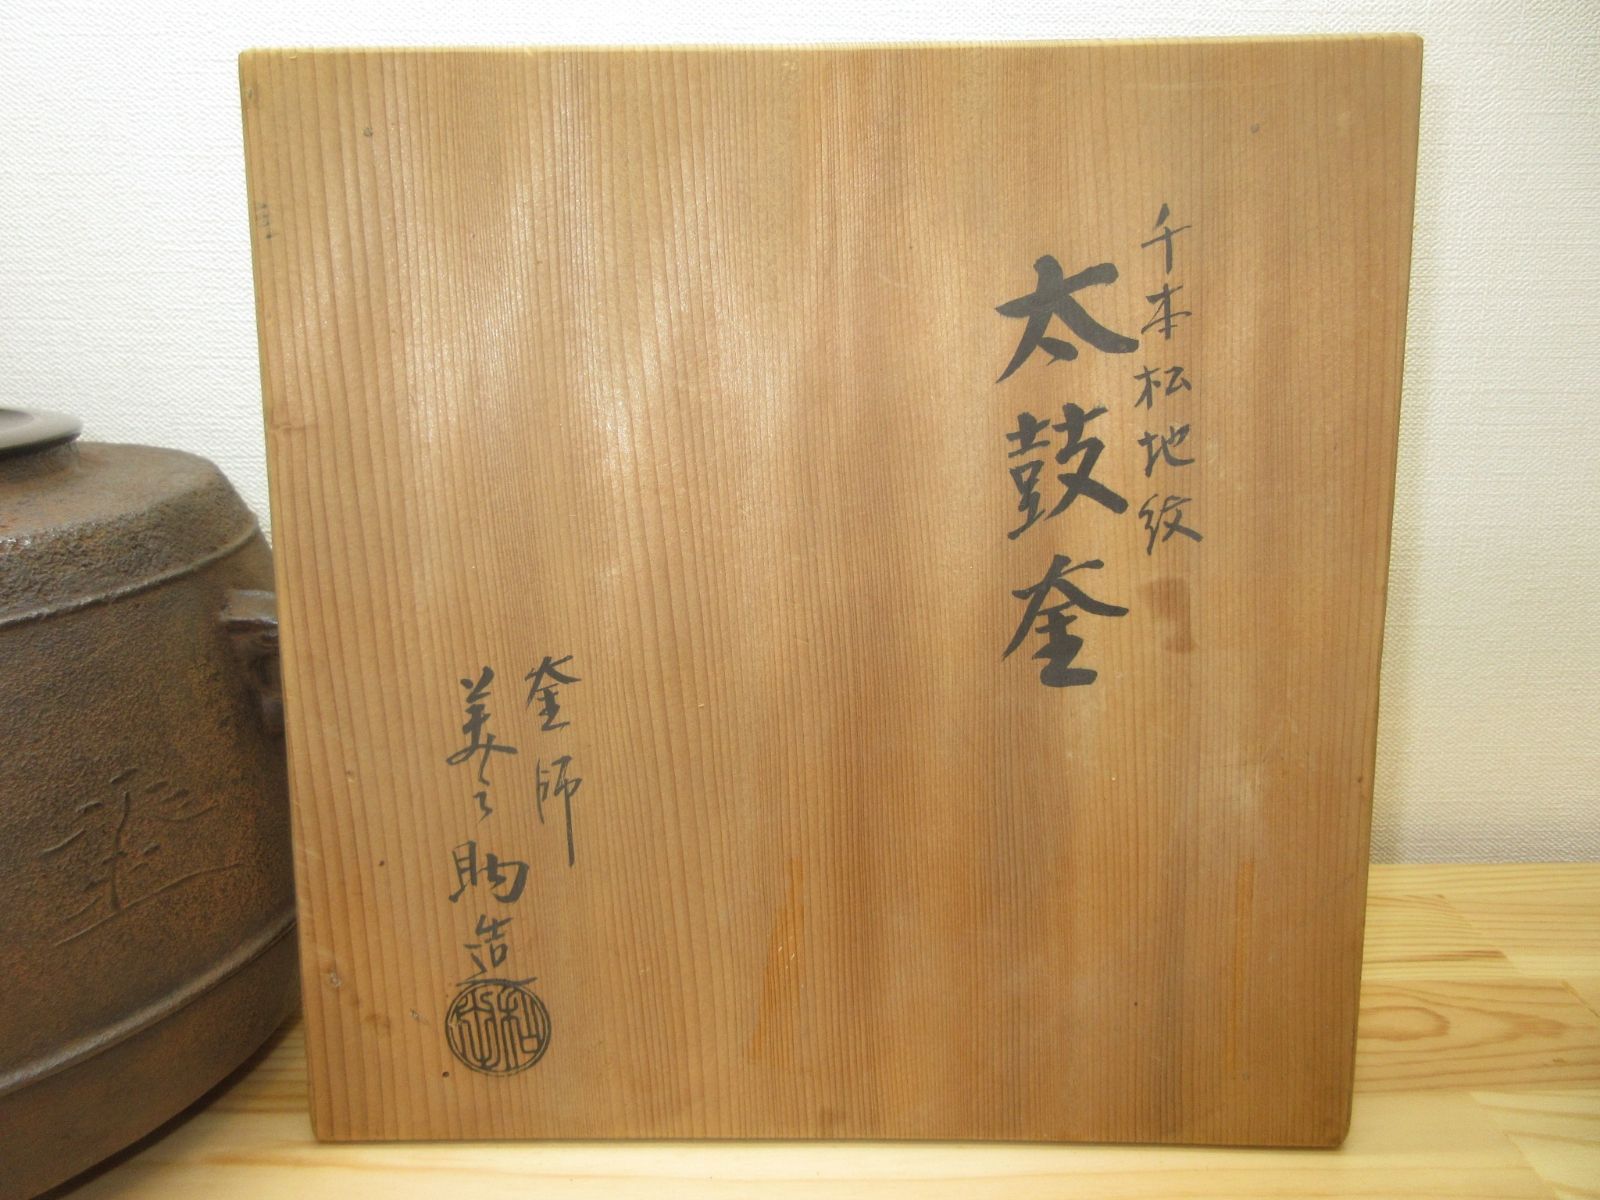 千本松地紋
太鼓釜
釜師
美之助造